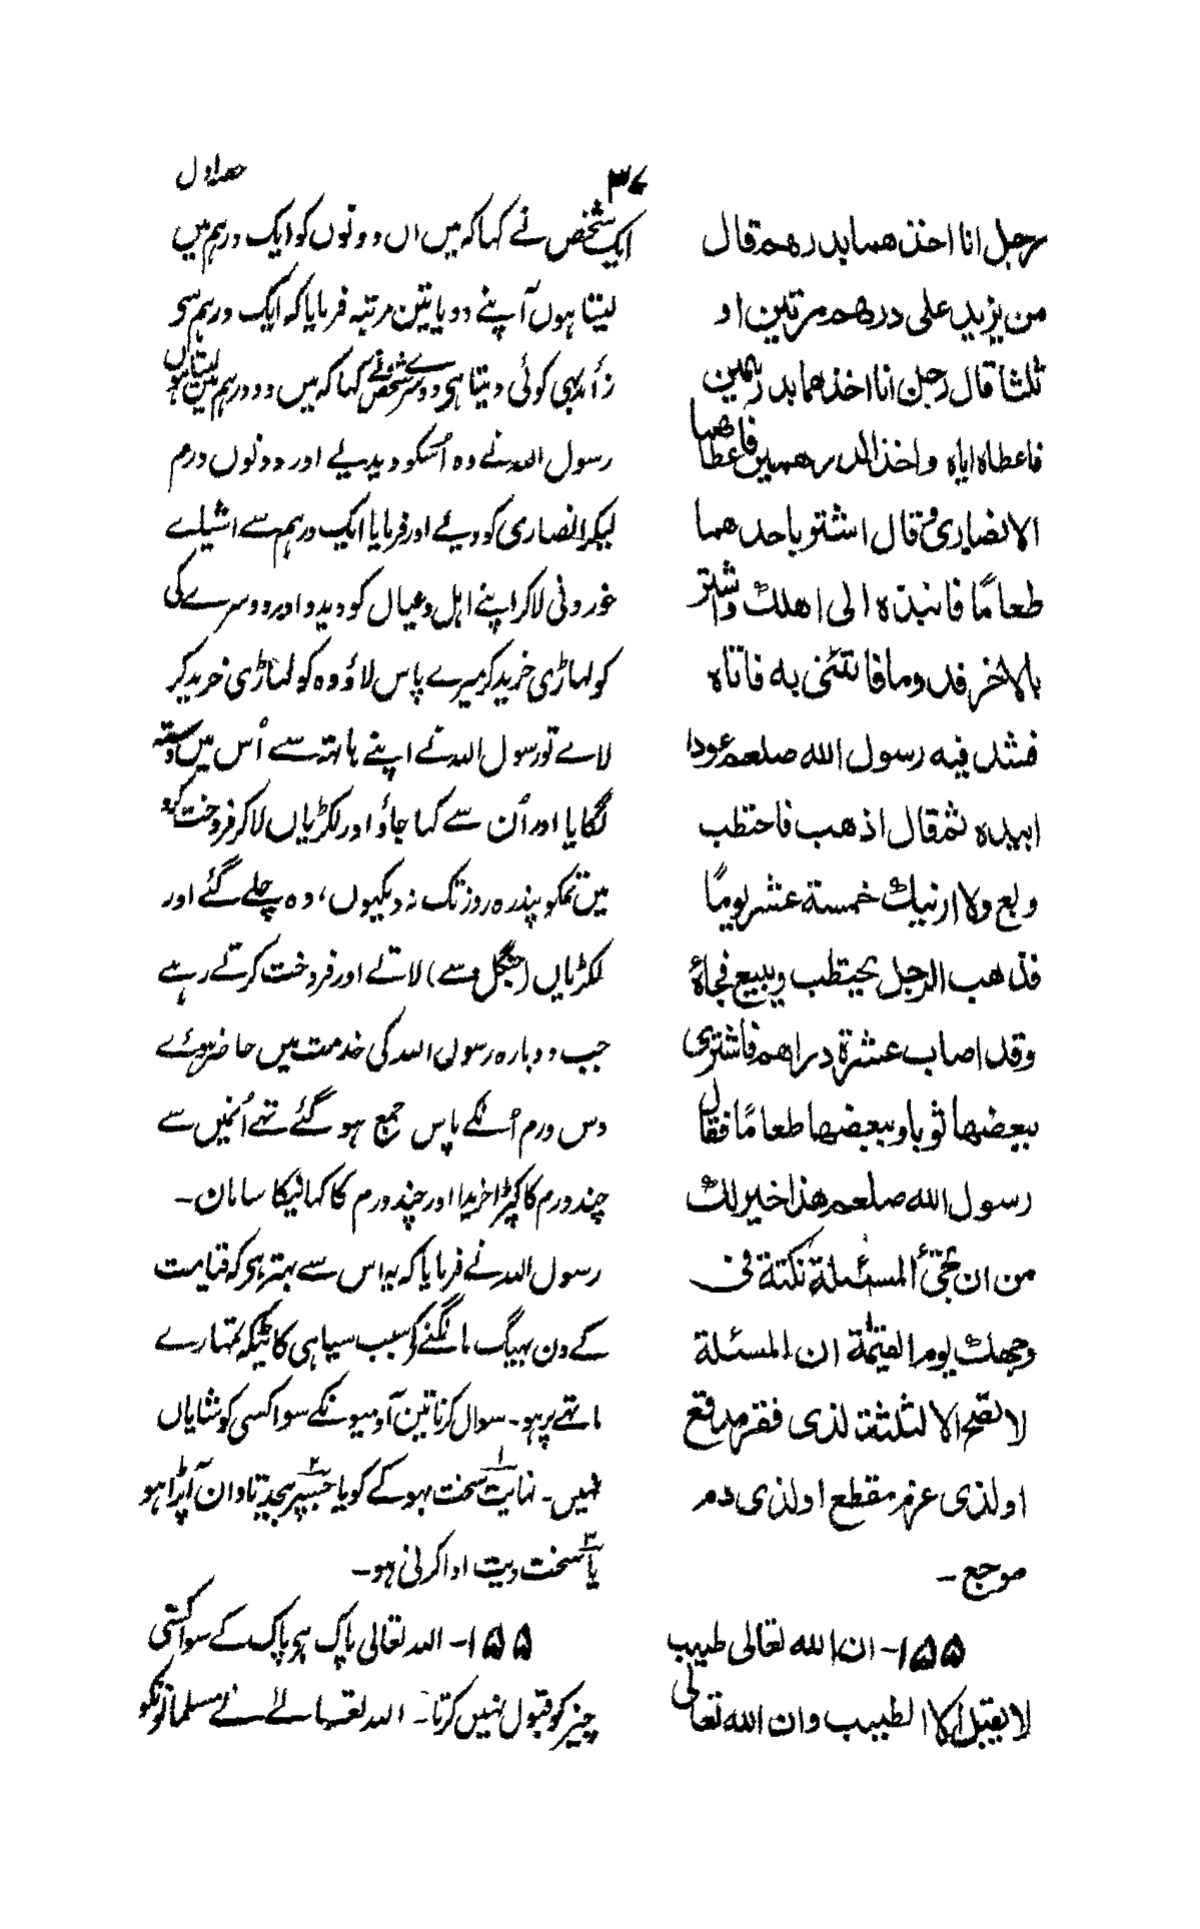 ۳۷
حصہ اول
رجل انا اخذهما بدرهم قال
من يزيد على درهم مرتين او
ثلثا قال رجل انا اخذهما بدرهمين
فاعطاه اياه واخذ الدرهمين فاعطاهما
الانصاری وقال اشتر باحدهما
طعامًا فانبذه الى اهلك واشتر
بالاخر قدوما فائتنی به فاتاه
فشد فيه رسول الله صلعم عودا
بيده ثم قال اذهب فاحتطب
وبع ولا ارينك خمسة عشر يومًا
فذهب الرجل يحتطب ويبيع فجاءه
وقد اصاب عشرة دراهم فاشترى
ببعضها ثوبا وببعضها طعامًا فقال
رسول الله صلعم هذا خير لك
من ان تجیٔ المسئلة نكتة فی
وجهك يوم القیٰمة ان المسئلة
لا تصلح الا لثلثة لذی فقر مدقع
او لذی غرم مقطع او لذی دم
موجع ۔
۱۵۵۔ ان الله تعالى طيب
لا يقبل الا الطيب وان الله تعالى
ایک شخص نے کہا کہ میں ان دونوں کو ایک درہم میں
لیتا ہوں آپنے دو یا تین مرتبہ فرمایا کہ ایک درہم سو
زائد بھی کوئی دیتا ہی دوسرے شخص نے کہا کہ میں دو درہم میں لیتا ہوں
رسول اللہ نے وہ اُسکو دیدیے اور دونوں درم
لیکر انصاری کو دیئے اور فرمایا ایک درہم سے اشیاے
خوردنی لاکر اپنے اہل وعیال کو دیدو اور دوسرے کی
کولہاڑی خرید کر میرے پاس لاؤ وہ کولہاڑی خرید کر
لاے تو رسول اللہ نے اپنے ہاتہ سے اُس میں دستہ
لگایا اور اُن سے کہا جاؤ اور لکڑیاں لاکر فروخت کرو
میں تمکو پندرہ روز تک نہ دیکہوں، وہ چلے گئے اور
لکڑیاں (جنگل سے) لاتے اور فروخت کرتے رہے
جب دوبارہ رسول اللہ کی خدمت میں حاضر ہوئے
دس درم اُنکے پاس جمع ہو گئے تہے اُنہیں سے
چند درم کا کپڑا خریدا اور چند درم کا کہانیکا سامان۔
رسول اللہ نے فرمایا کہ یہ اس سے بہتر ہی کہ قیامت
کے دن بہیک مانگنے کے سبب سیاہی کا ٹیکہ تمہارے
ماتہے پر ہو۔ سوال کرنا تین آدمیونکے سوا کسی کو شایاں
نہیں۔ نہایت سخت بہوکے کو یا جسپر بیجد تاوان آپڑا ہو
یا سخت دیت ادا کرنی ہو۔
۱۵۵۔ اللہ تعالی پاک ہی پاک کے سوا کسی
چیز کو قبول نہیں کرتا۔ اللہ تعالے نے مسلمانونکو